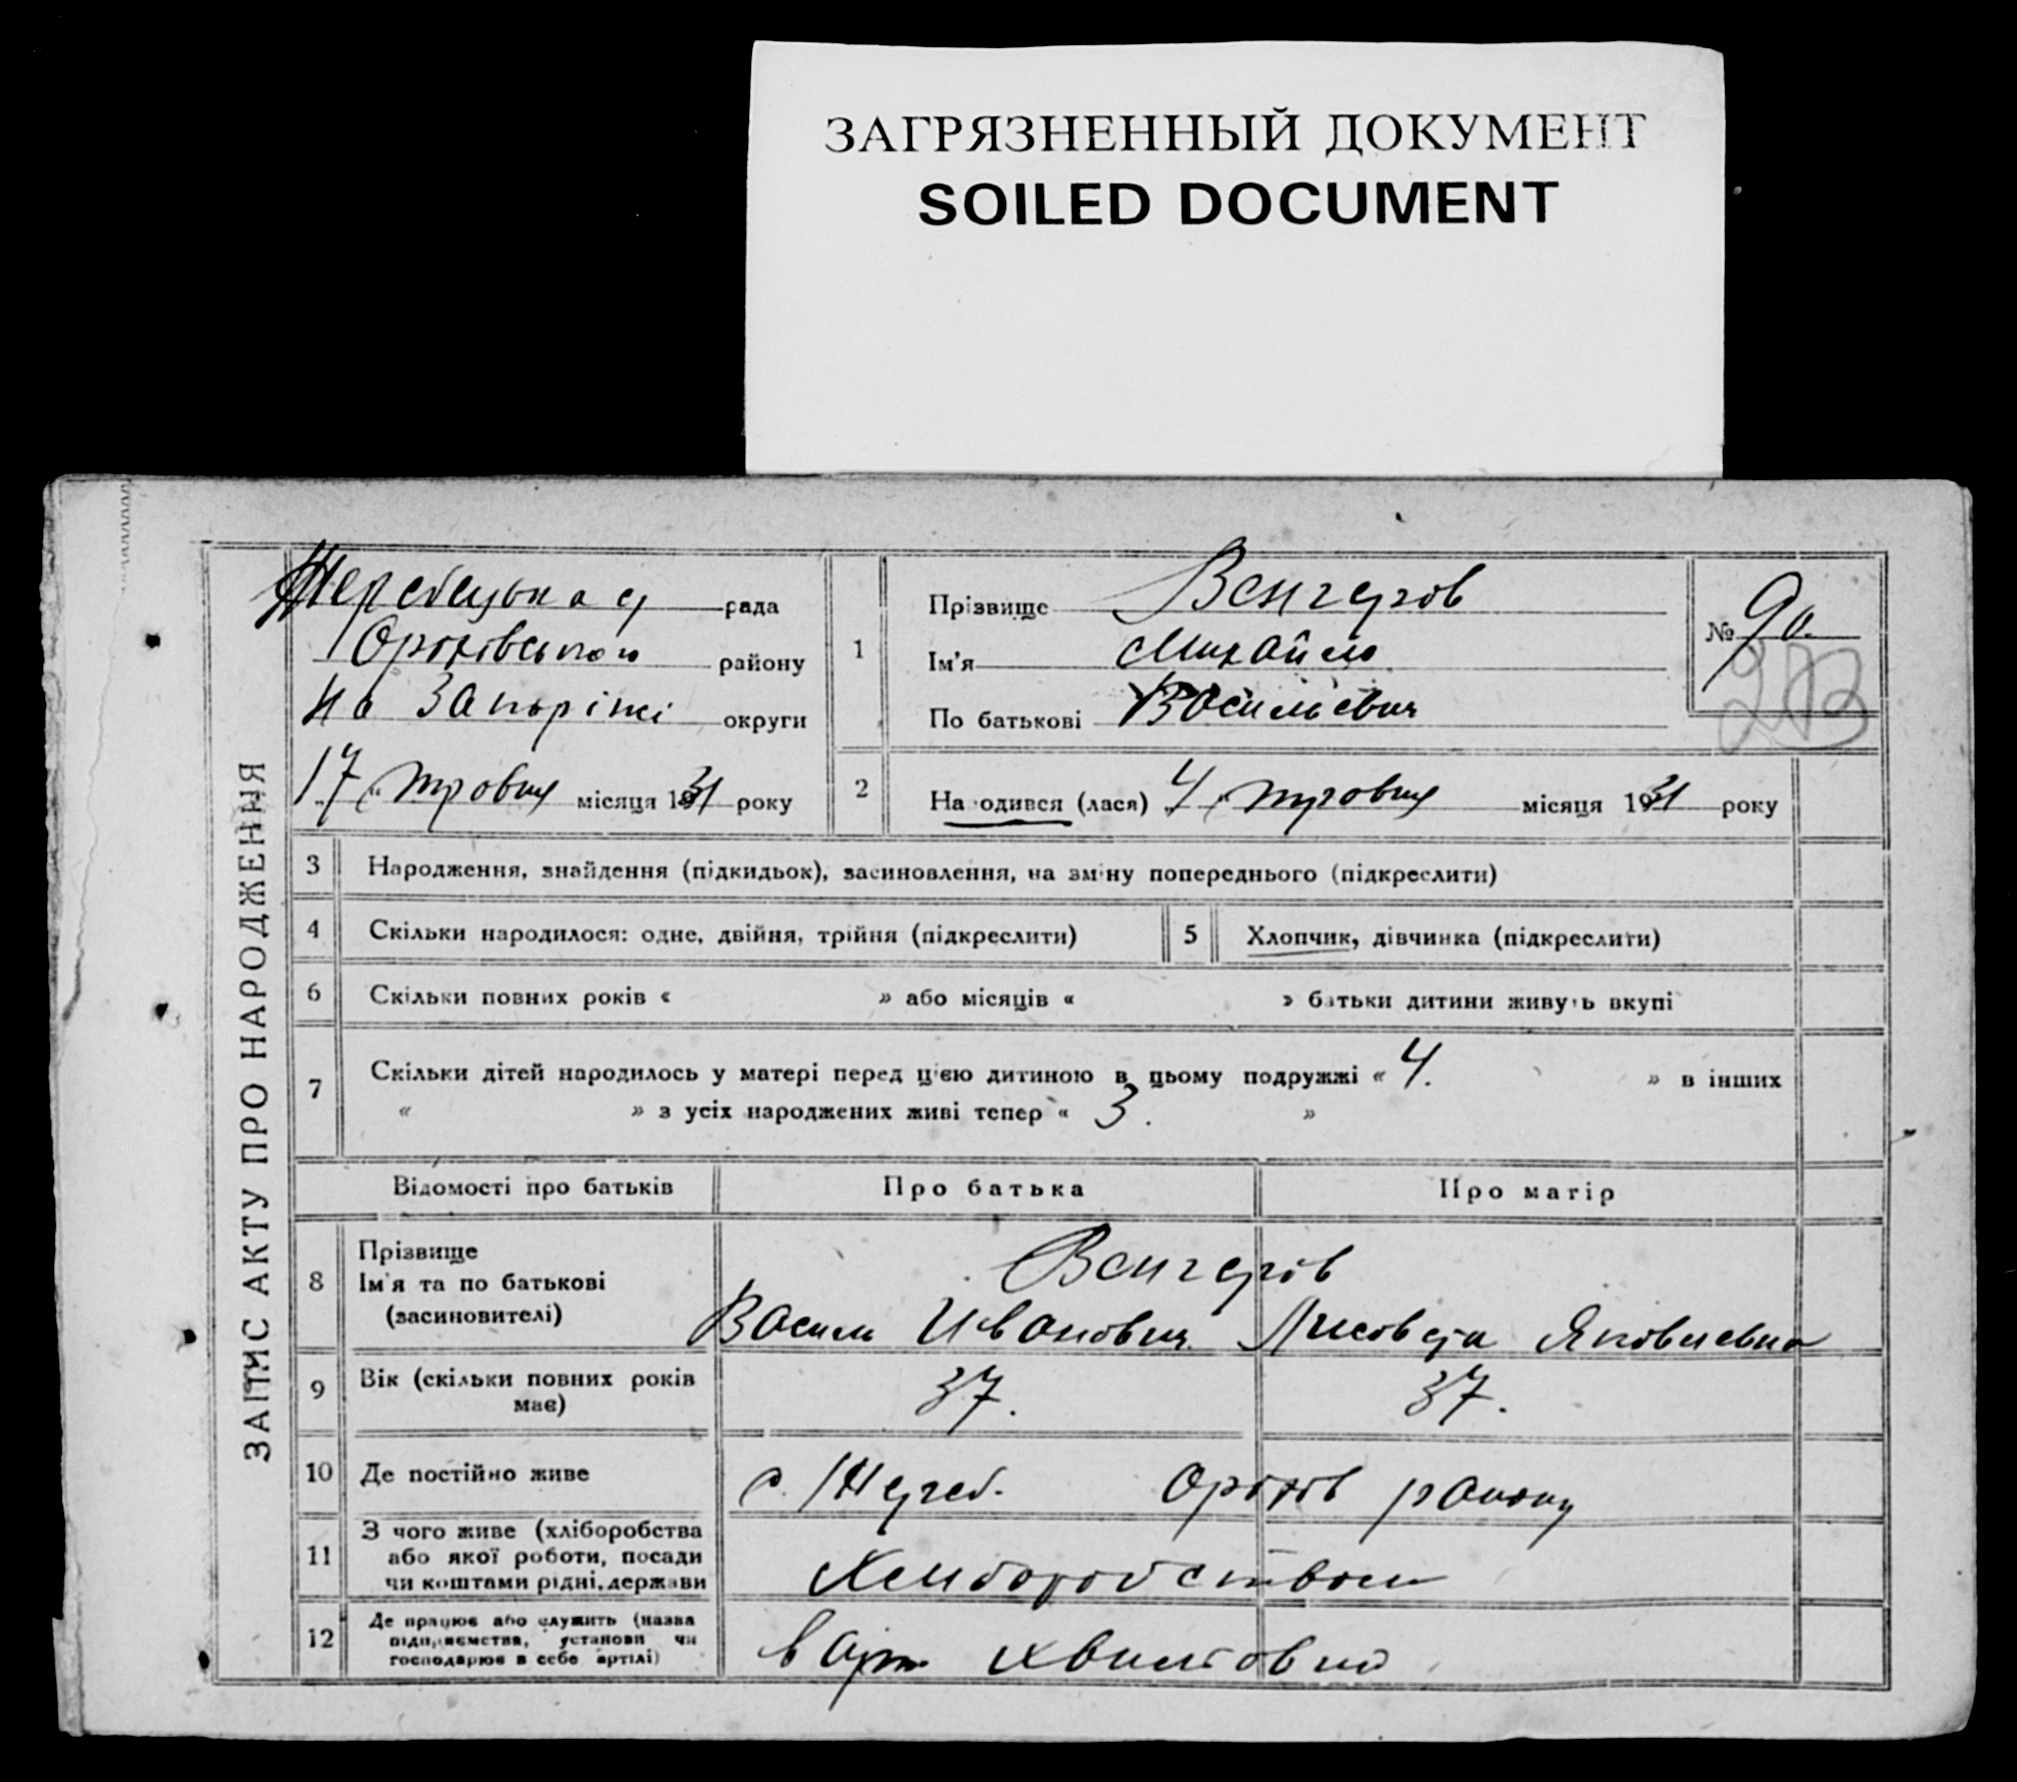 ЗАГРЯЗНЕННЫЙ ДОКУМЕНТ
SOILED DOCUMENT
ЗАПИС АКТУ ПРО НАРОДЖЕННЯ
Жеребецька с/ рада
Оріхівського району
на Запоріжі округи
17 " травня місяця 1931 року
1
Прізвище Венгеров
Ім'я Михайло
По батькові Васильевич
№ 90.
273
2
Народився (лася) 4 " травня місяця 1931 року
3 Народження, знайдення (підкидьок), засиновлення, на зміну попереднього (підкреслити)
4 Скільки народилося: одне, двійня, трійня (підкреслити)
5 Хлопчик, дівчинка (підкреслити)
6 Скільки повних років « » або місяців « » батьки дитини живуть вкупі
7 Скільки дітей народилось у матері перед цією дитиною в цьому подружжі « 4. » в інших
« » з усіх народжених живі тепер « 3. »
Відомості про батьків Про батька Про матір
8 Прізвище
Ім'я та по батькові
(засиновителі)
Венгеров
Василь Иванович Лисовета Яковлевна
9 Вік (скільки повних років
має)
37. 37.
10 Де постійно живе с. Жереб. Оріхів району
11 З чого живе (хліборобства
або якої роботи, посади
чи коштами рідні, держави
Хлиборобством
12 Де працює або служить (назва
підприємства, установи чи
господарює в себе артілі)
в арт.